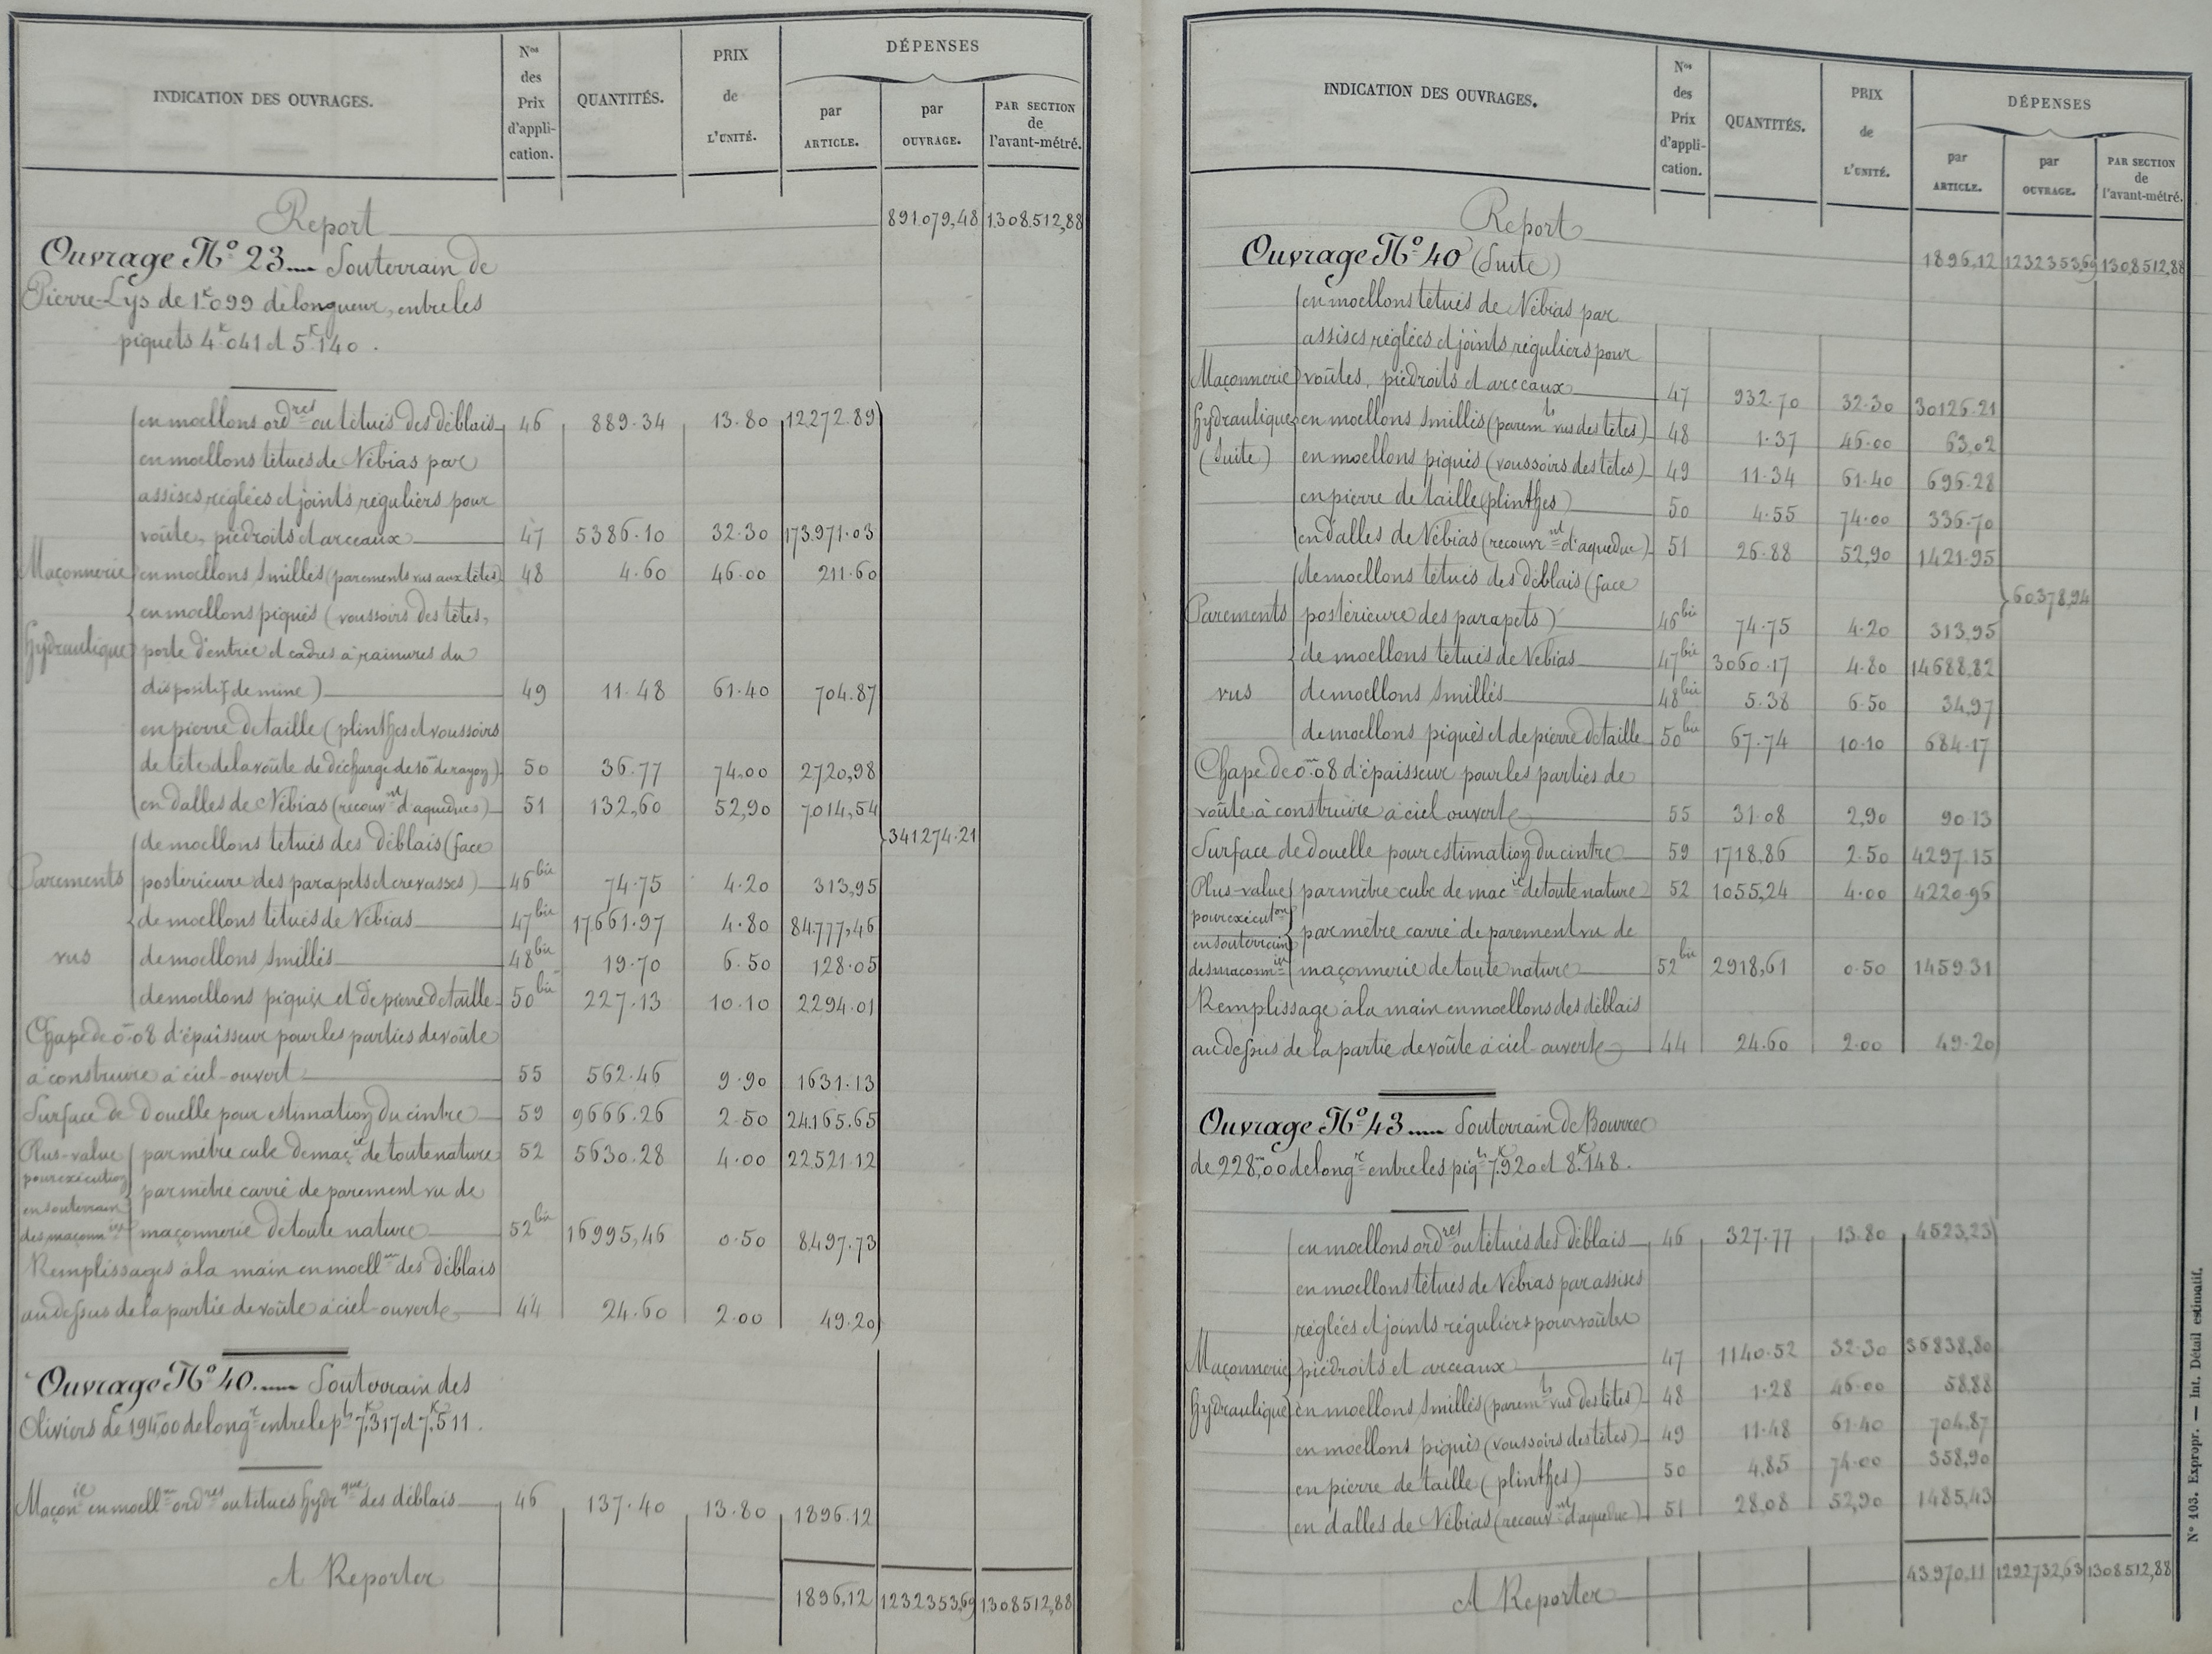 INDICATION DES OUVRAGES.
Nos des Prix d'appli-cation.
QUANTITÉS.
PRIX de L'UNITÉ.
DÉPENSES
par ARTICLE.
par OUVRAGE.
PAR SECTION de l'avant-métré.
Report 891.079,48 1.308.512,88
Ouvrage No 23 Souterrain de
Pierre-Lys de 1k.099 de longueur, entre les
piquets 4k.041 et 5k.140.
Maçonnerie Hydraulique
en moellons ordres ou têtués des déblais 46 889.34 13.80 12272.89
en moellons têtués de Nébias par
assises réglées et joints réguliers pour
voûte, piédroits et arceaux 47 5386.10 32.30 173.971.03
en moellons smillés (parements vus aux têtes) 48 4.60 46.00 211.60
en moellons piqués (voussoirs des têtes,
porte d'entrée et cadres à rainures du
dispositif de mine) 49 11.48 61.40 704.87
en pierre de taille (plinthes et voussoirs
de tête de la voûte de décharge de 10m de rayon) 50 36.77 74.00 2720,98
en dalles de Nébias (recouvnt d'aqueducs) 51 132,60 52,90 7.014,54
341274.21
Parements vus
de moellons têtués des déblais (face
postérieure des parapets et crevasses) 46bis 74.75 4.20 313,95
de moellons têtués de Nébias 47bis 17661.97 4.80 84.777,46
de moellons smillés 48bis 19.70 6.50 128.05
de moellons piqués et de pierre de taille 50bis 227.13 10.10 2294.01
Chape de 0m.08 d'épaisseur pour les parties de voûte
à construire à ciel-ouvert 55 562.46 9.90 1631.13
Surface de douelle pour estimation du cintre 59 9666.26 2.50 24.165.65
Plus-value pour exécution en souterrain des maçonies
par mètre cube de maçie de toute nature 52 5630.28 4.00 22.521.12
par mètre carré de parement vu de
maçonnerie de toute nature 52bis 16995,46 0.50 8.497.73
Remplissages à la main en moellns des déblais
au dessus de la partie de voûte à ciel-ouvert 44 24.60 2.00 49.20
Ouvrage No 40. Souterrain des
Oliviers de 194m00 de longr entre le pts 7k.317 et 7k.511.
Maçonie en moellns ordres ou têtués hydrque des déblais 46 137.40 13.80 1896.12
A Reporter 1896,12 1232353,69 1308512,88
INDICATION DES OUVRAGES.
Nos des Prix d'appli-cation.
QUANTITÉS.
PRIX de L'UNITÉ.
DÉPENSES
par ARTICLE.
par OUVRAGE.
PAR SECTION de l'avant-métré.
Report 1896,12 1232353,69 1308512,88
Ouvrage No 40 (Suite)
Maçonnerie hydraulique (Suite)
en moellons têtués de Nébias par
assises réglées et joints réguliers pour
voûtes, piédroits et arceaux 47 932.70 32.30 30126.21
en moellons smillés (paremts vus des têtes) 48 1.37 46.00 63,02
en moellons piqués (voussoirs des têtes) 49 11.34 61.40 696.28
en pierre de taille (plinthes) 50 4.55 74.00 336.70
en dalles de Nébias (recouvrnt d'aqueduc) 51 26.88 52,90 1421.95
60.378,94
Parements vus
de moellons têtués des déblais (face
postérieure des parapets) 46bis 74.75 4.20 313,95
de moellons têtués de Nébias 47bis 3060.17 4.80 14688,82
de moellons smillés 48bis 5.38 6.50 34,97
de moellons piqués et de pierre de taille 50bis 67.74 10.10 684.17
Chape de 0m.08 d'épaisseur pour les parties de
voûte à construire à ciel ouvert 55 31.08 2,90 90.13
Surface de douelle pour estimation du cintre 59 1718,86 2.50 4297.15
Plus-value pour exécuton en souterrain des maçonnies
par mètre cube de macie de toute nature 52 1055,24 4.00 4220.96
par mètre carré de parement vu de
maçonnerie de toute nature 52bis 2918,61 0.50 1459.31
Remplissage à la main en moellons des déblais
au dessus de la partie de voûte à ciel-ouvert 44 24.60 2.00 49.20
Ouvrage No 43 Souterrain de Bourrec
de 228m,00 de longr entre les piqts 7k.920 et 8k.148.
Maçonnerie hydraulique
en moellons ordres ou têtués des déblais 46 327.77 13.80 4523,23
en moellons têtués de Nébias par assises
réglées et joints réguliers pour voûtes
piédroits et arceaux 47 1140.52 32.30 36838,80
en moellons smillés (paremts vus des têtes) 48 1.28 46.00 58.88
en moellons piqués (voussoirs des têtes) 49 11.48 61.40 704.87
en pierre de taille (plinthes) 50 4,85 74.00 358,90
en dalles de Nébias (recouvnt d'aqueduc) 51 28,08 52,90 1485,43
A Reporter 43.970,11 1292732,63 1308512,88
N° 103. Expropr. — Int. Détail estimatif.